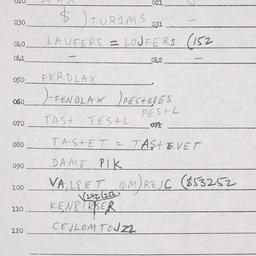 $ )TURSMS 031 –
030
040 LAUFERS = LOJFERS (152
041 – 042 –
050 FERDLAX
060 )-FENDLAX )PESTLPES
PEST L
070 TAST TESTL 071
080 TASTET = TASTEVET
090 DAME PIK
100 VA,LPET QM)REJC ($53252
110 KENPIRSER
120 CEJLOMTOJZZ